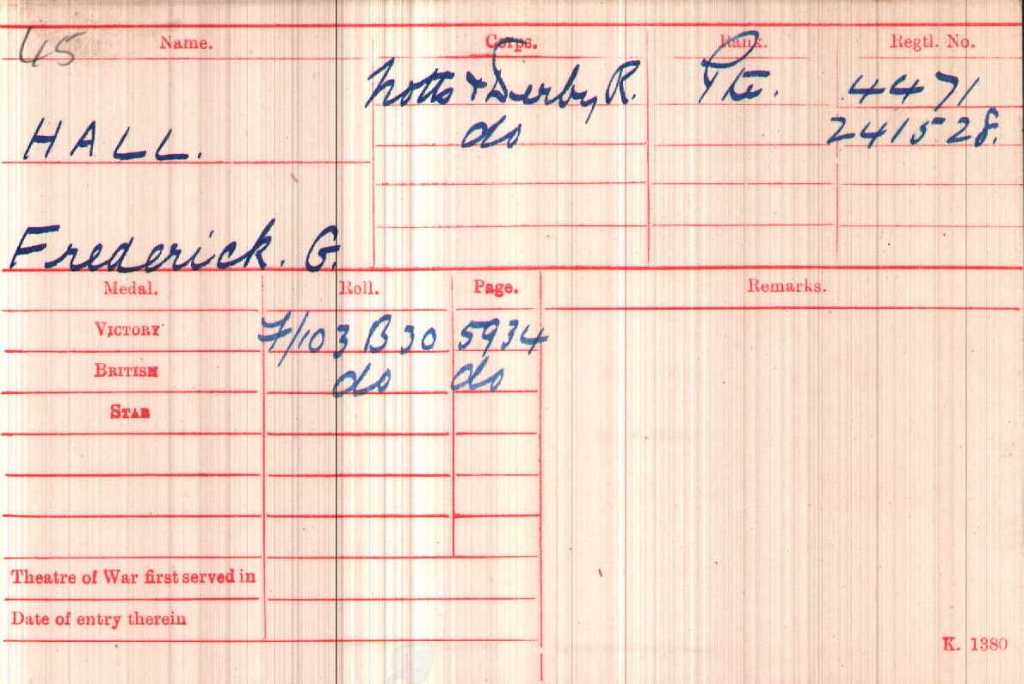 45
Name. Corps. Rank. Regtl. No.
Notts & Derby R. Pte. 4471
HALL. do 241528.
Frederick. G.
Medal. Roll. Page. Remarks.
VICTORY F/103 B30 5934
BRITISH do do
STAR
Theatre of War first served in
Date of entry therein
K. 1380